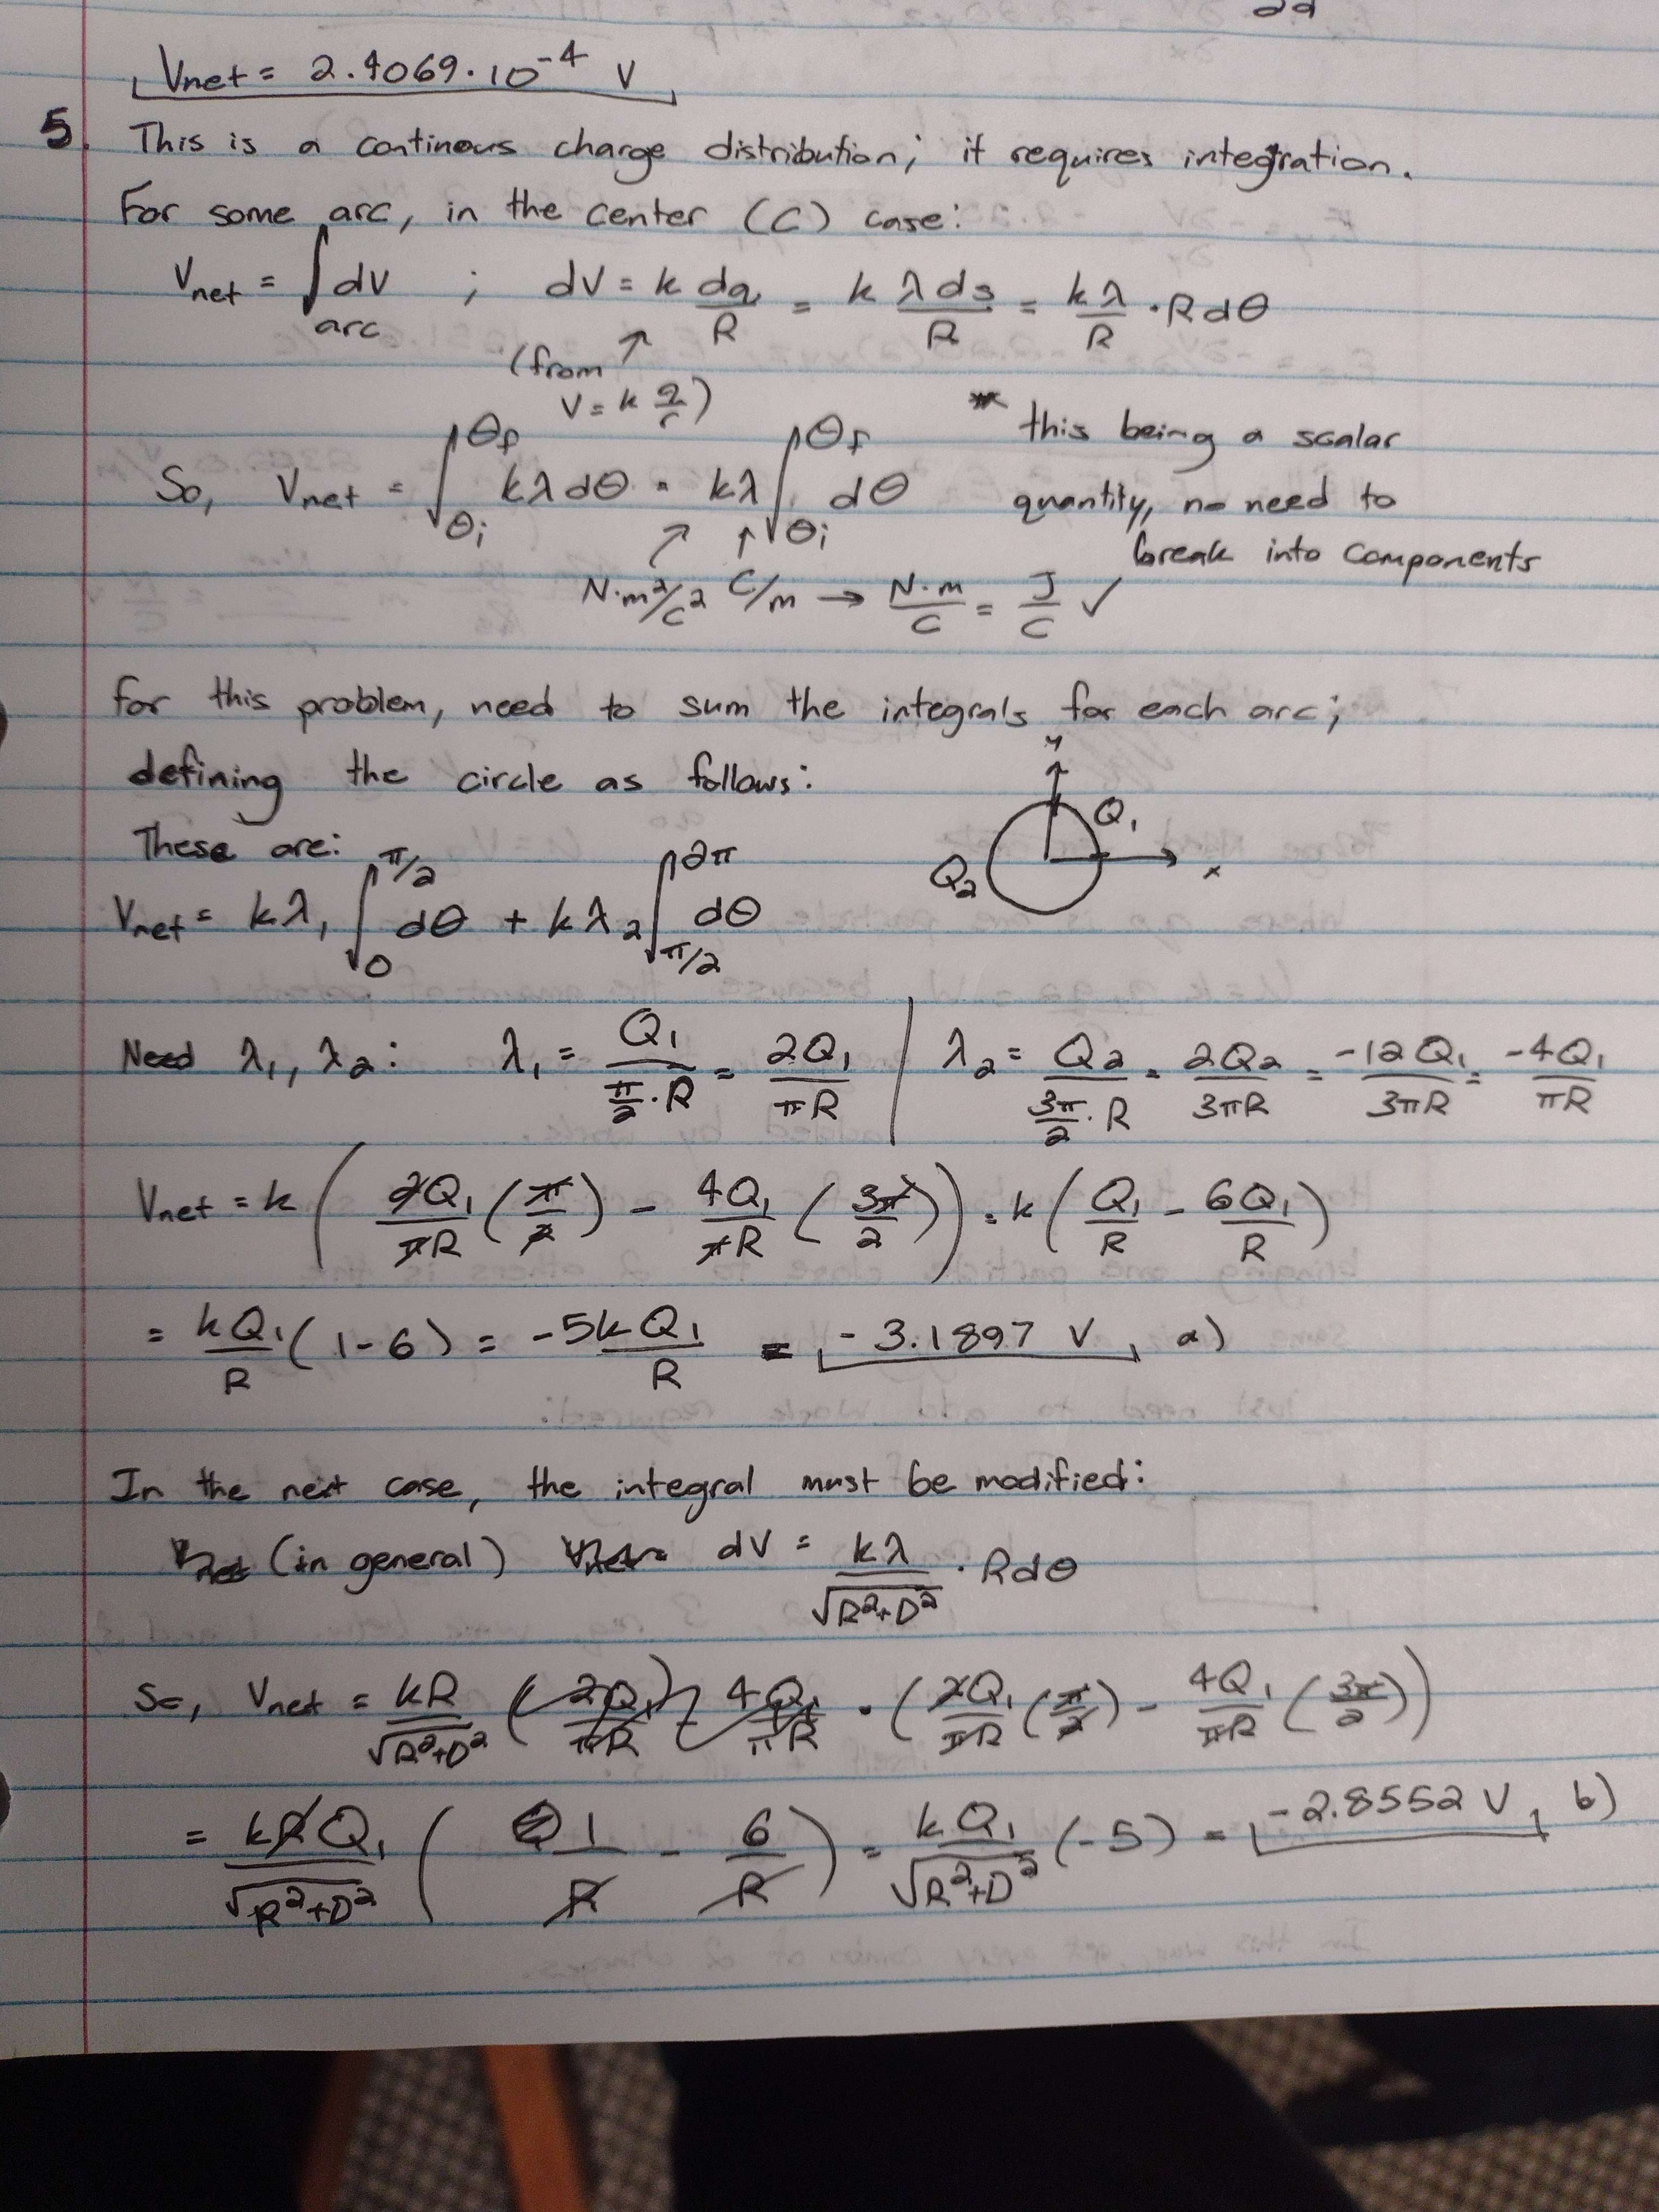 2d
Vnet = 2.4069·10⁻⁴ V
5. This is a continous charge distribution; it requires integration.
For some arc, in the center (C) case:
Vnet = ∫arc dV ; dV = k dq/R = k λds/R = kλ/R · Rdθ
(from V = k q/r)
So, Vnet = ∫θi^θf kλdθ = kλ ∫θi^θf dθ
* this being a scalar
quantity, no need to
break into components
N·m²/C² C/m → N·m/C = J/C ✓
For this problem, need to sum the integrals for each arc;
defining the circle as follows:
y
Q₁
Q₂
x
These are:
Vnet = kλ₁ ∫0^π/2 dθ + kλ₂ ∫π/2^2π dθ
Need λ₁, λ₂: λ₁ = Q₁/(π/2·R) = 2Q₁/πR | λ₂ = Q₂/(3π/2·R) = 2Q₂/3πR = -12Q₁/3πR = -4Q₁/πR
Vnet = k(2Q₁/πR (π/2) - 4Q₁/πR (3π/2)) = k(Q₁/R - 6Q₁/R)
= kQ₁/R (1-6) = -5kQ₁/R = -3.1897 V a)
In the next case, the integral must be modified:
(in general) dV = kλ/√R²+D² · Rdθ
So, Vnet = kR/√R²+D² · (2Q₁/πR (π/2) - 4Q₁/πR (3π/2))
= kRQ₁/√R²+D² (1/R - 6/R) = kQ₁/√R²+D² (-5) = -2.8552 V b)